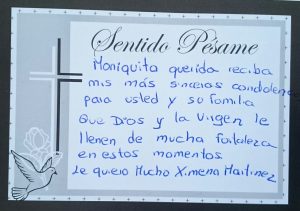 Sentido Pésame
Moniquita querida reciba
mis más sinceras condolencias
para usted y su familia
Que Dios y la Virgen le
llenen de mucha fortaleza
en estos momentos.
Le quiero Mucho Ximena Martinez